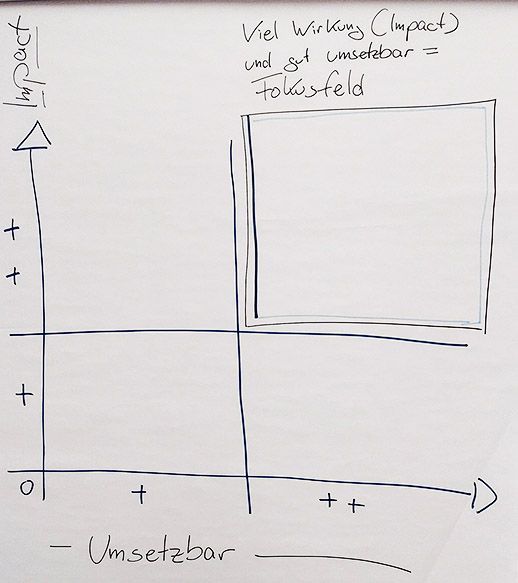 Impact
Viel Wirkung (Impact)
und gut umsetzbar =
Fokusfeld
+
+
+
0
+
++
- Umsetzbar